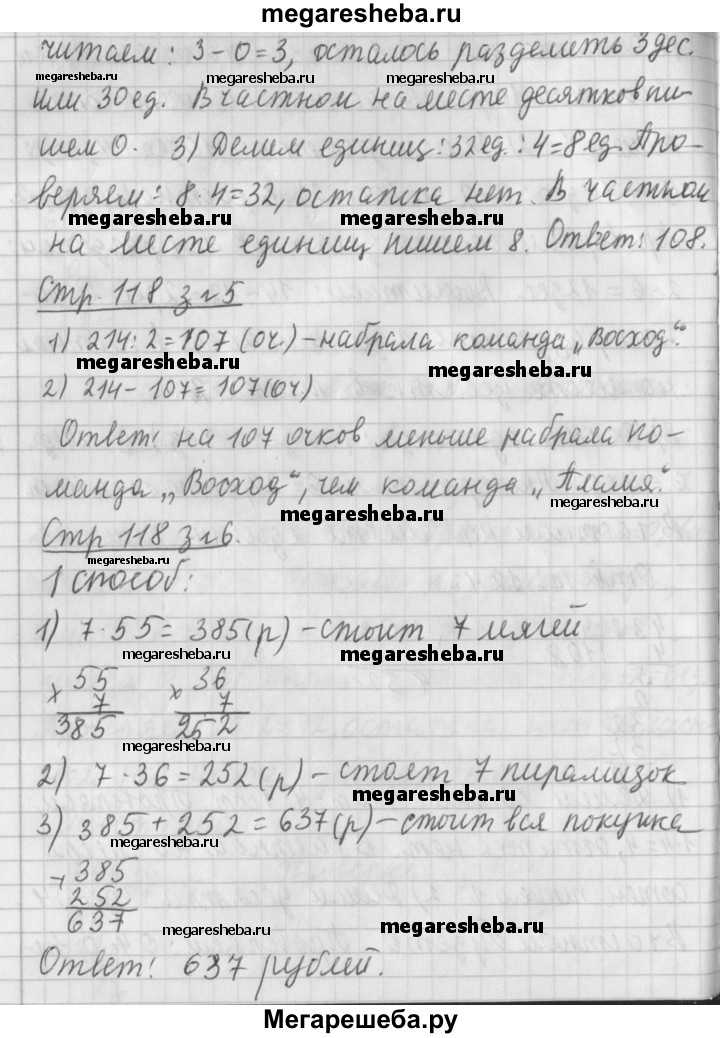 megaresheba.ru
читаем: 3-0=3, осталось разделить 3 дес.
megaresheba.ru megaresheba.ru megaresheba.ru
или 30 ед. В частном на месте десятков пи-
шем 0. 3) Делим единиц: 32 ед.: 4=8 ед. Про-
веряем: 8·4=32, остатка нет. В частном
megaresheba.ru megaresheba.ru
на месте единиц пишем 8. Ответ: 108.
Стр. 118 з. №5
1) 214:2=107 (оч.) - набрала команда „Восход".
megaresheba.ru megaresheba.ru
2) 214-107=107 (оч)
Ответ: на 107 очков меньше набрала ко-
манда „Восход", чем команда „Алания".
megaresheba.ru megaresheba.ru
Стр 118 з. №6.
megaresheba.ru
1 способ:
1) 7·55=385 (р) - стоит 7 мячей
megaresheba.ru megaresheba.ru
× 55 × 36
7 7
385 252
megaresheba.ru
2) 7·36=252 (р) - стоят 7 пирамидок
megaresheba.ru
3) 385+252=637 (р) - стоит вся покупка
megaresheba.ru
+ 385
252
637
megaresheba.ru megaresheba.ru
Ответ: 637 рублей.
megaresheba.ru megaresheba.ru
Мегарешеба.ру